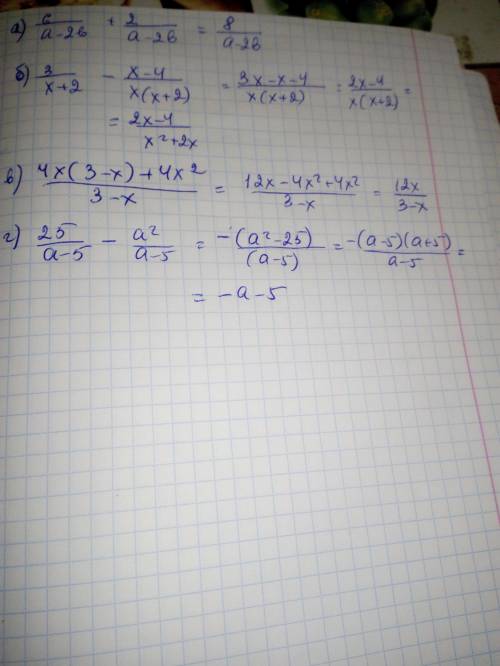 а) 6/(а-2в) + 2/(а-2в) = 8/(а-2в)
б) 3/(x+2) - (x-4)/(x(x+2)) = (3x-x-4)/(x(x+2)) = (2x-4)/(x(x+2)) =
= (2x-4)/(x²+2x)
в) (4x(3-x)+4x²)/(3-x) = (12x-4x²+4x²)/(3-x) = 12x/(3-x)
г) 25/(a-5) - a²/(a-5) = -(a²-25)/(a-5) = -(a-5)(a+5)/(a-5) =
= -a-5